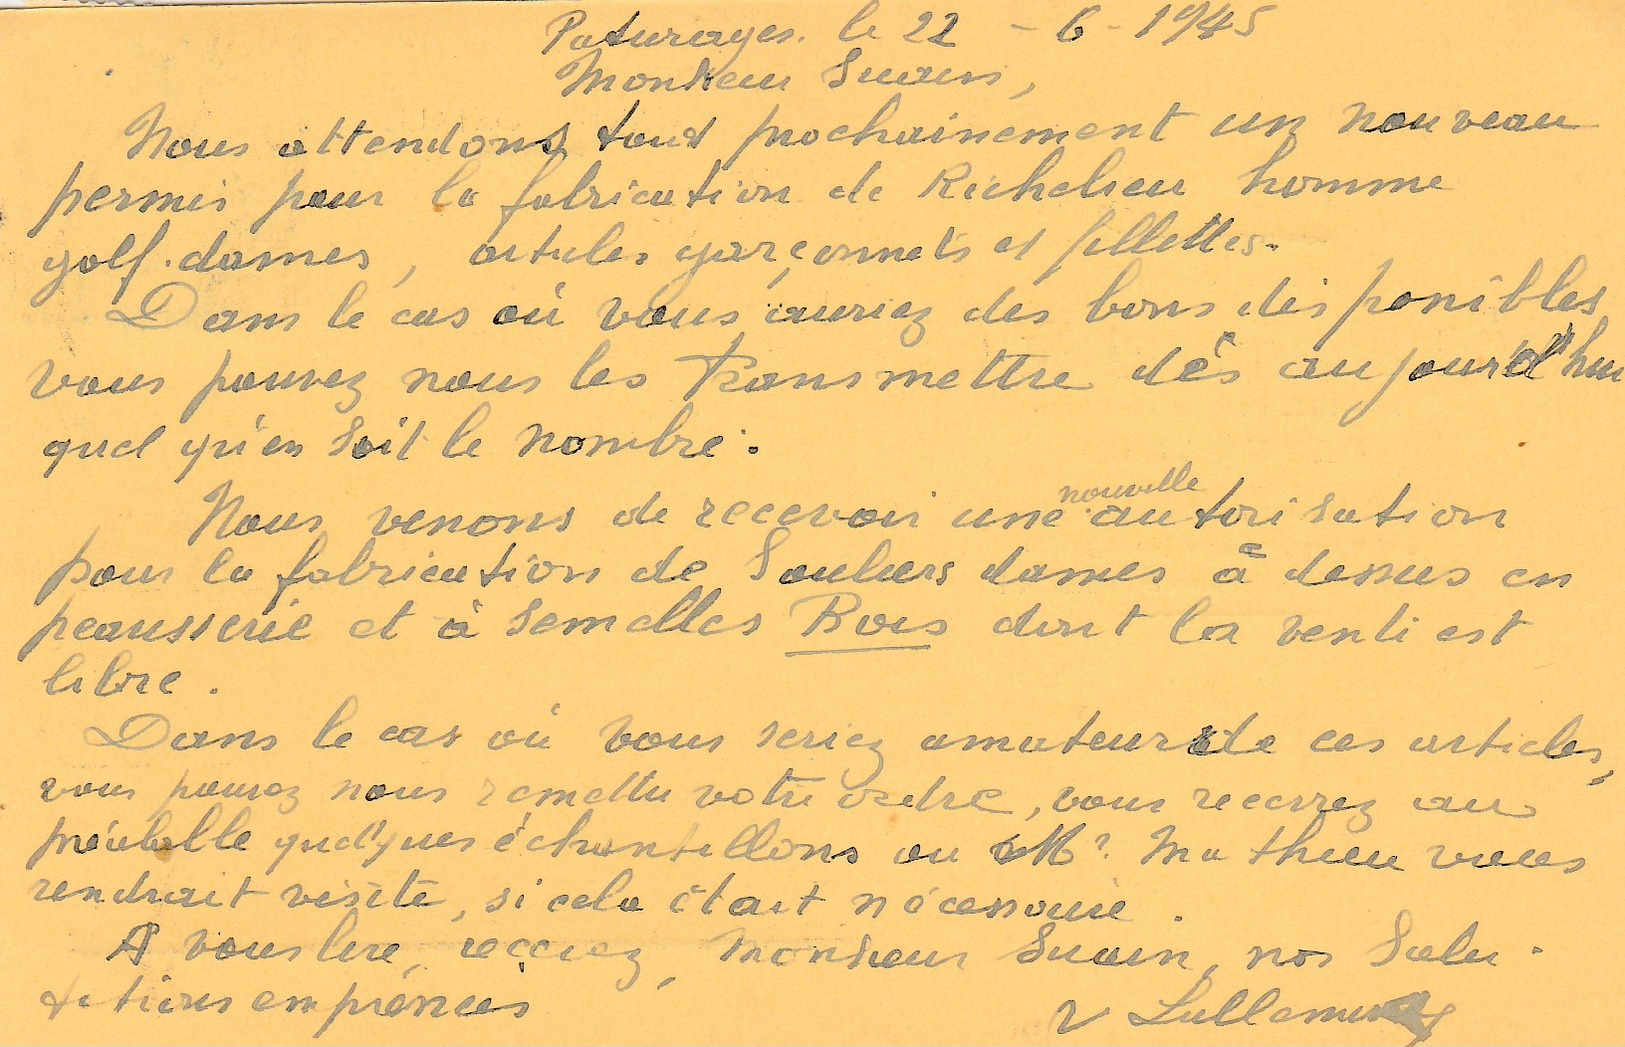 Paturages. le 22 - 6 - 1945
Monsieur Suain,
Nous attendons tout prochainement un nouveau
permis pour la fabrication de Richelieu homme
golf. dames, articles garçonnets et fillettes.
Dans le cas où vous auriez des bons disponibles,
vous pouvez nous les transmettre dès aujourd'hui
quel qu'en soit le nombre.
Nous venons de recevoir une nouvelle autorisation
pour la fabrication de Souliers dames à dessus en
peausserie et à semelles Bois dont la vente est
libre.
Dans le cas où vous seriez amateur de ces articles,
vous pouvez nous remettre votre ordre, vous recevrez au
préalable quelques échantillons ou Mr. Mathieu vous
rendrait visite, si cela était nécessaire.
A vous lire, recevez, Monsieur Suain, nos Salu-
tations empréssées